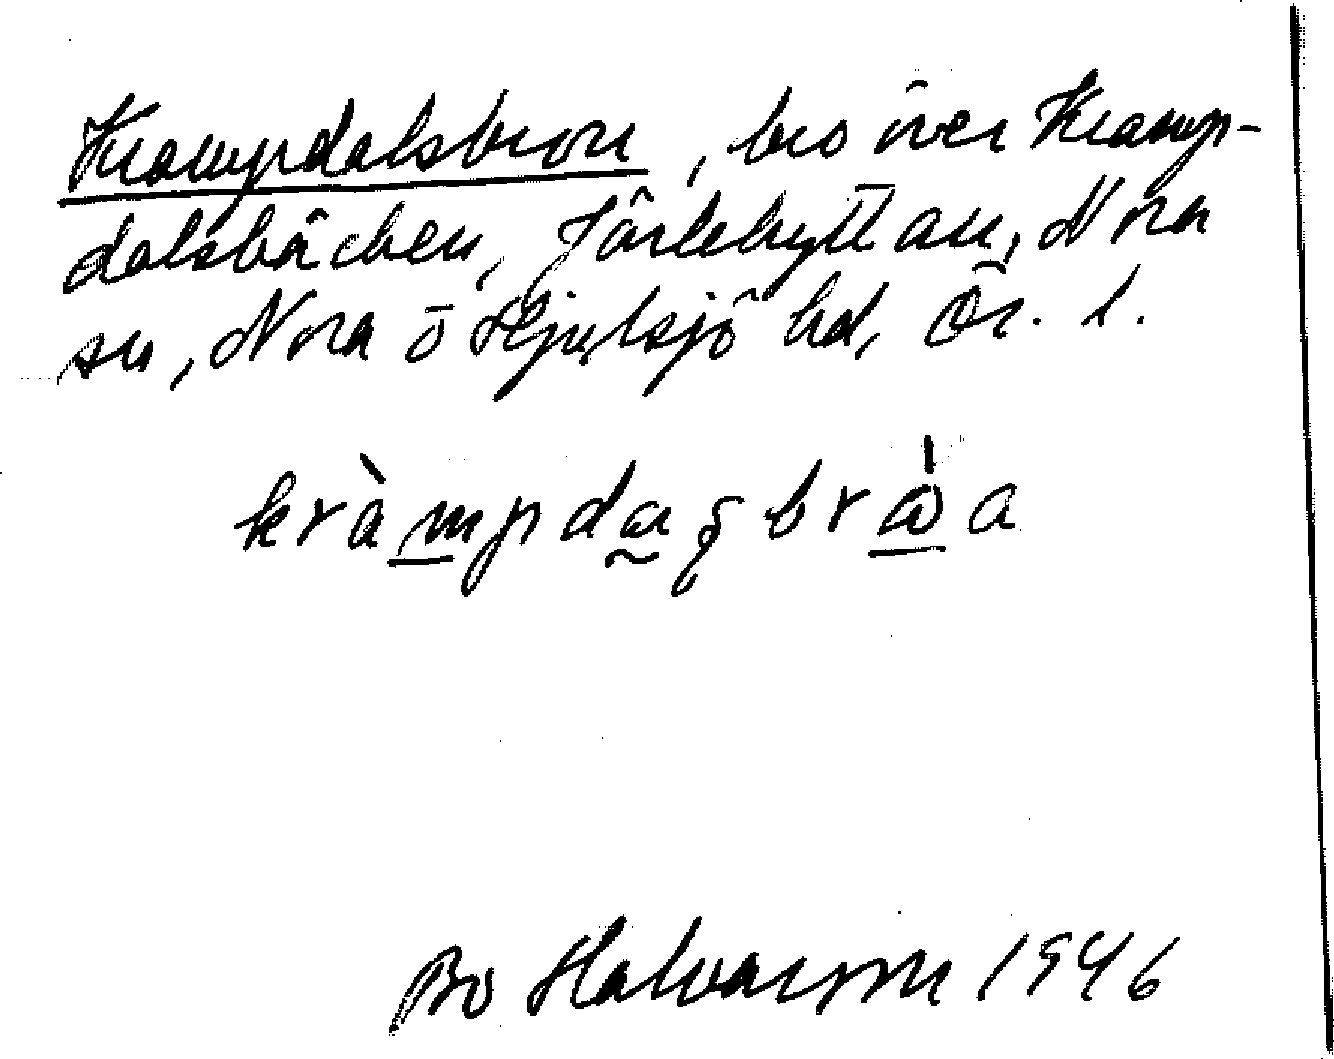 Krampdalsbron, bro över Kramp-
dalsbäcken, Järlehyttan, Nora
sn, Nora o Hjulsjö hd, Ör. l.
Bo Halvarsson 1946